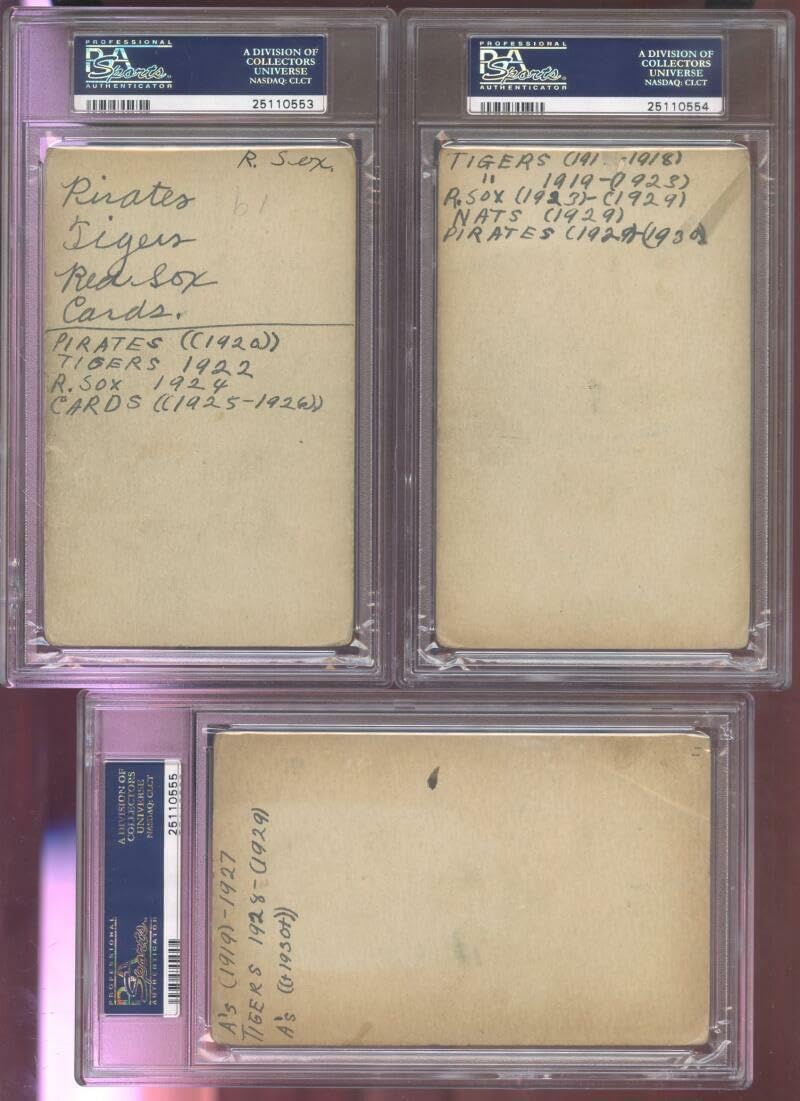 PROFESSIONAL
PSA
Sports
AUTHENTICATOR
A DIVISION OF
COLLECTORS
UNIVERSE
NASDAQ: CLCT
25110553
R. Sox.
Pirates
Tigers
Red Sox
Cards.
PIRATES ((1920))
TIGERS 1922
R. SOX 1924
CARDS ((1925-1926))
PROFESSIONAL
PSA
Sports
AUTHENTICATOR
A DIVISION OF
COLLECTORS
UNIVERSE
NASDAQ: CLCT
25110554
TIGERS -1918)
" 1919-(1923)
R. SOX (1923)-(1929)
NATS (1929)
PIRATES
PROFESSIONAL
PSA
Sports
AUTHENTICATOR
A DIVISION OF
COLLECTORS
UNIVERSE
NASDAQ: CLCT
25110555
A's (1919)-1927
TIGERS 1928-(1929)
A's ((+1930+))